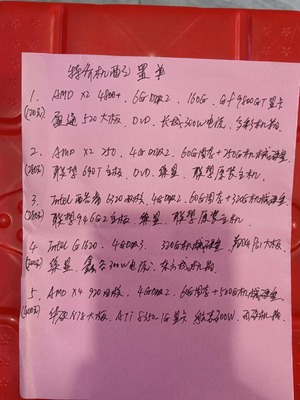 特价机配置单
1. AMD X2 4800+, 6G DDR2, 160G, Gf9800GT显卡
(120元) 盈通520大板, DVD, 长城300W电源,
2. AMD X2 250, 4G DDR2, 60G固态+250G机械硬盘
(280元) 联想690T主板, DVD, 集显, 联想原装主机
3. Intel 6320双核, 4G DDR2, 60G固态+320G机械硬盘
(280元) 联想946G2主板, 集显, 联想原装主机
4. Intel G1620, 4G DDR3, 320G机械硬盘, H61大板
集显, 300W电源, 机箱
5. AMD X4 920四核, 4G DDR2, 60G固态+500G机械硬盘
N78大板, ATi 8350 1G显卡 航嘉300W, 机箱